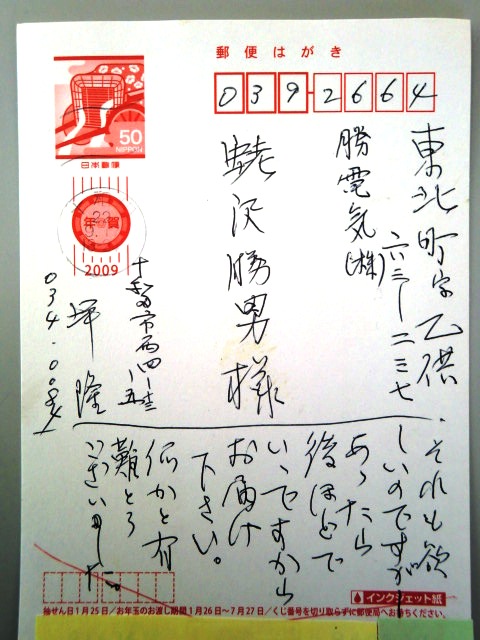 郵便はがき
039-2664
東北町字乙供
六三ー二三七
勝電気(株)
蛯沢勝男様
50
NIPPON
日本郵便
年賀
2009
十和田市西四ー
隆
034-0084
それも欲
しいのですが
あったら
後ほどで
いいですから
お届け
下さい。
何かと有
難とう
ございました。
インクジェット紙
抽せん日1月25日/お年玉のお渡し期間1月26日〜7月27日/くじ番号を切り取らずに郵便局へお持ちください。